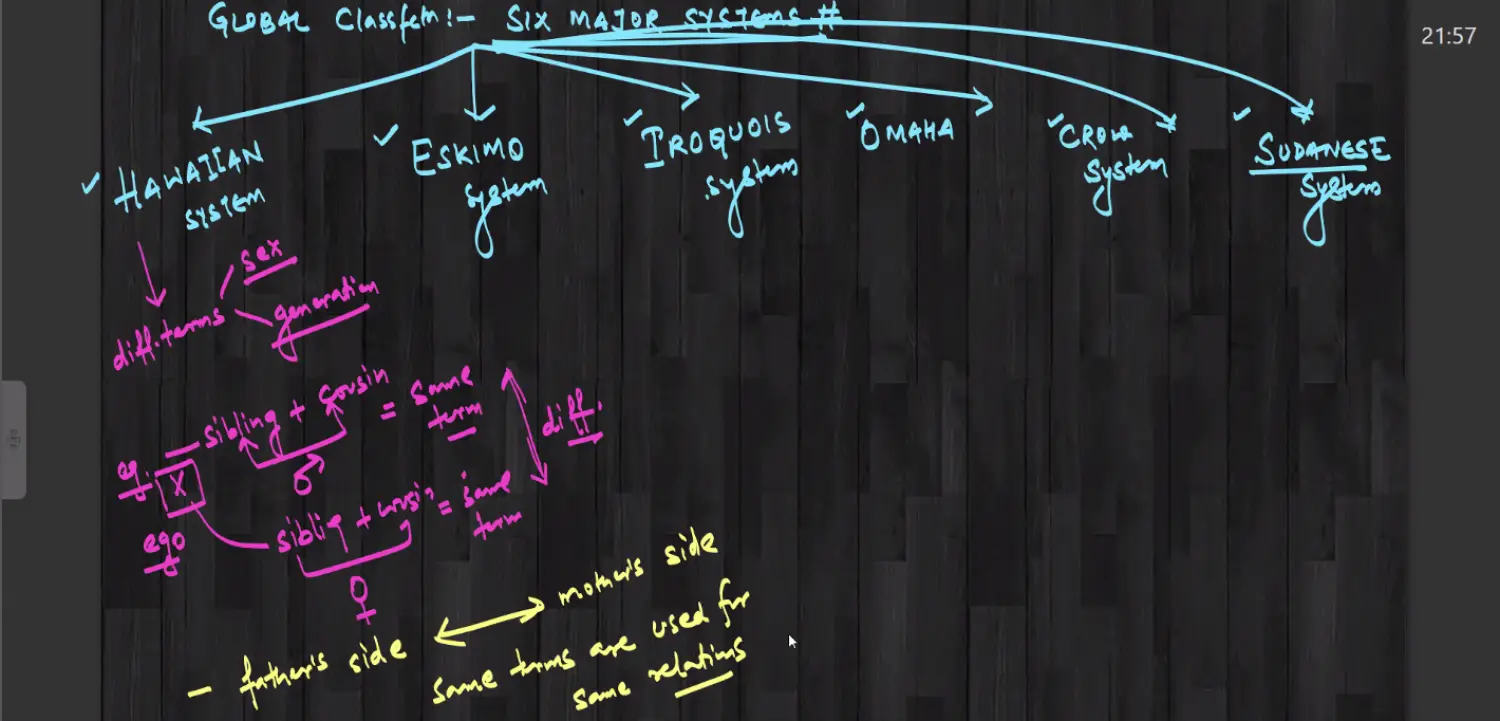 GLOBAL Classfctn:- SIX MAJOR SYSTEMS #
21:57
HAWAIIAN
SYSTEM
ESKIMO
system
IROQUOIS
system
OMAHA
CROW
system
SUDANESE
system
diff. terms
sex
generation
eg. X
ego
sibling + cousin = same
term
diff.
siblig + cousin = same
term
- father's side
mother's side
same terms are used for
same relations